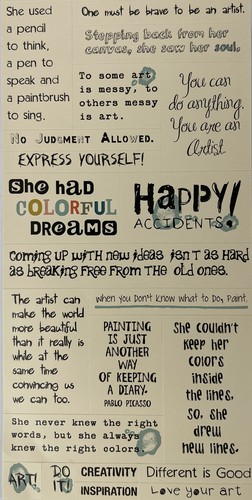 She used
a pencil
to think,
a pen to
speak and
a paintbrush
to sing.
One must be brave to be an artist.
Stepping back from her
canvas, she saw her soul.
To some art
is messy, to
others messy
is art.
You can
do anything.
You are an
Artist
No Judgment Allowed.
EXPRESS YOURSELF!
She had
COLORFUL
DReaMS
HaPPY!
ACCIDENTS.
coming up with new ideas isn't as hard
as breaking free from the old ones.
The artist can
make the world
more beautiful
than it really is
while at the
same time
convincing us
we can too.
when you Don't know what to Do, Paint.
PAINTING
IS JUST
ANOTHER
WAY
OF KEEPING
A DIARY.
PABLO PICASSO
She couldn't
keep her
colors
inside
the lines,
so, she
drew
new lines.
She never knew the right
words, but she always
knew the right colors.
ART!
DO
IT!
CREATIVITY
INSPIRATION
Different is Good
Love your art